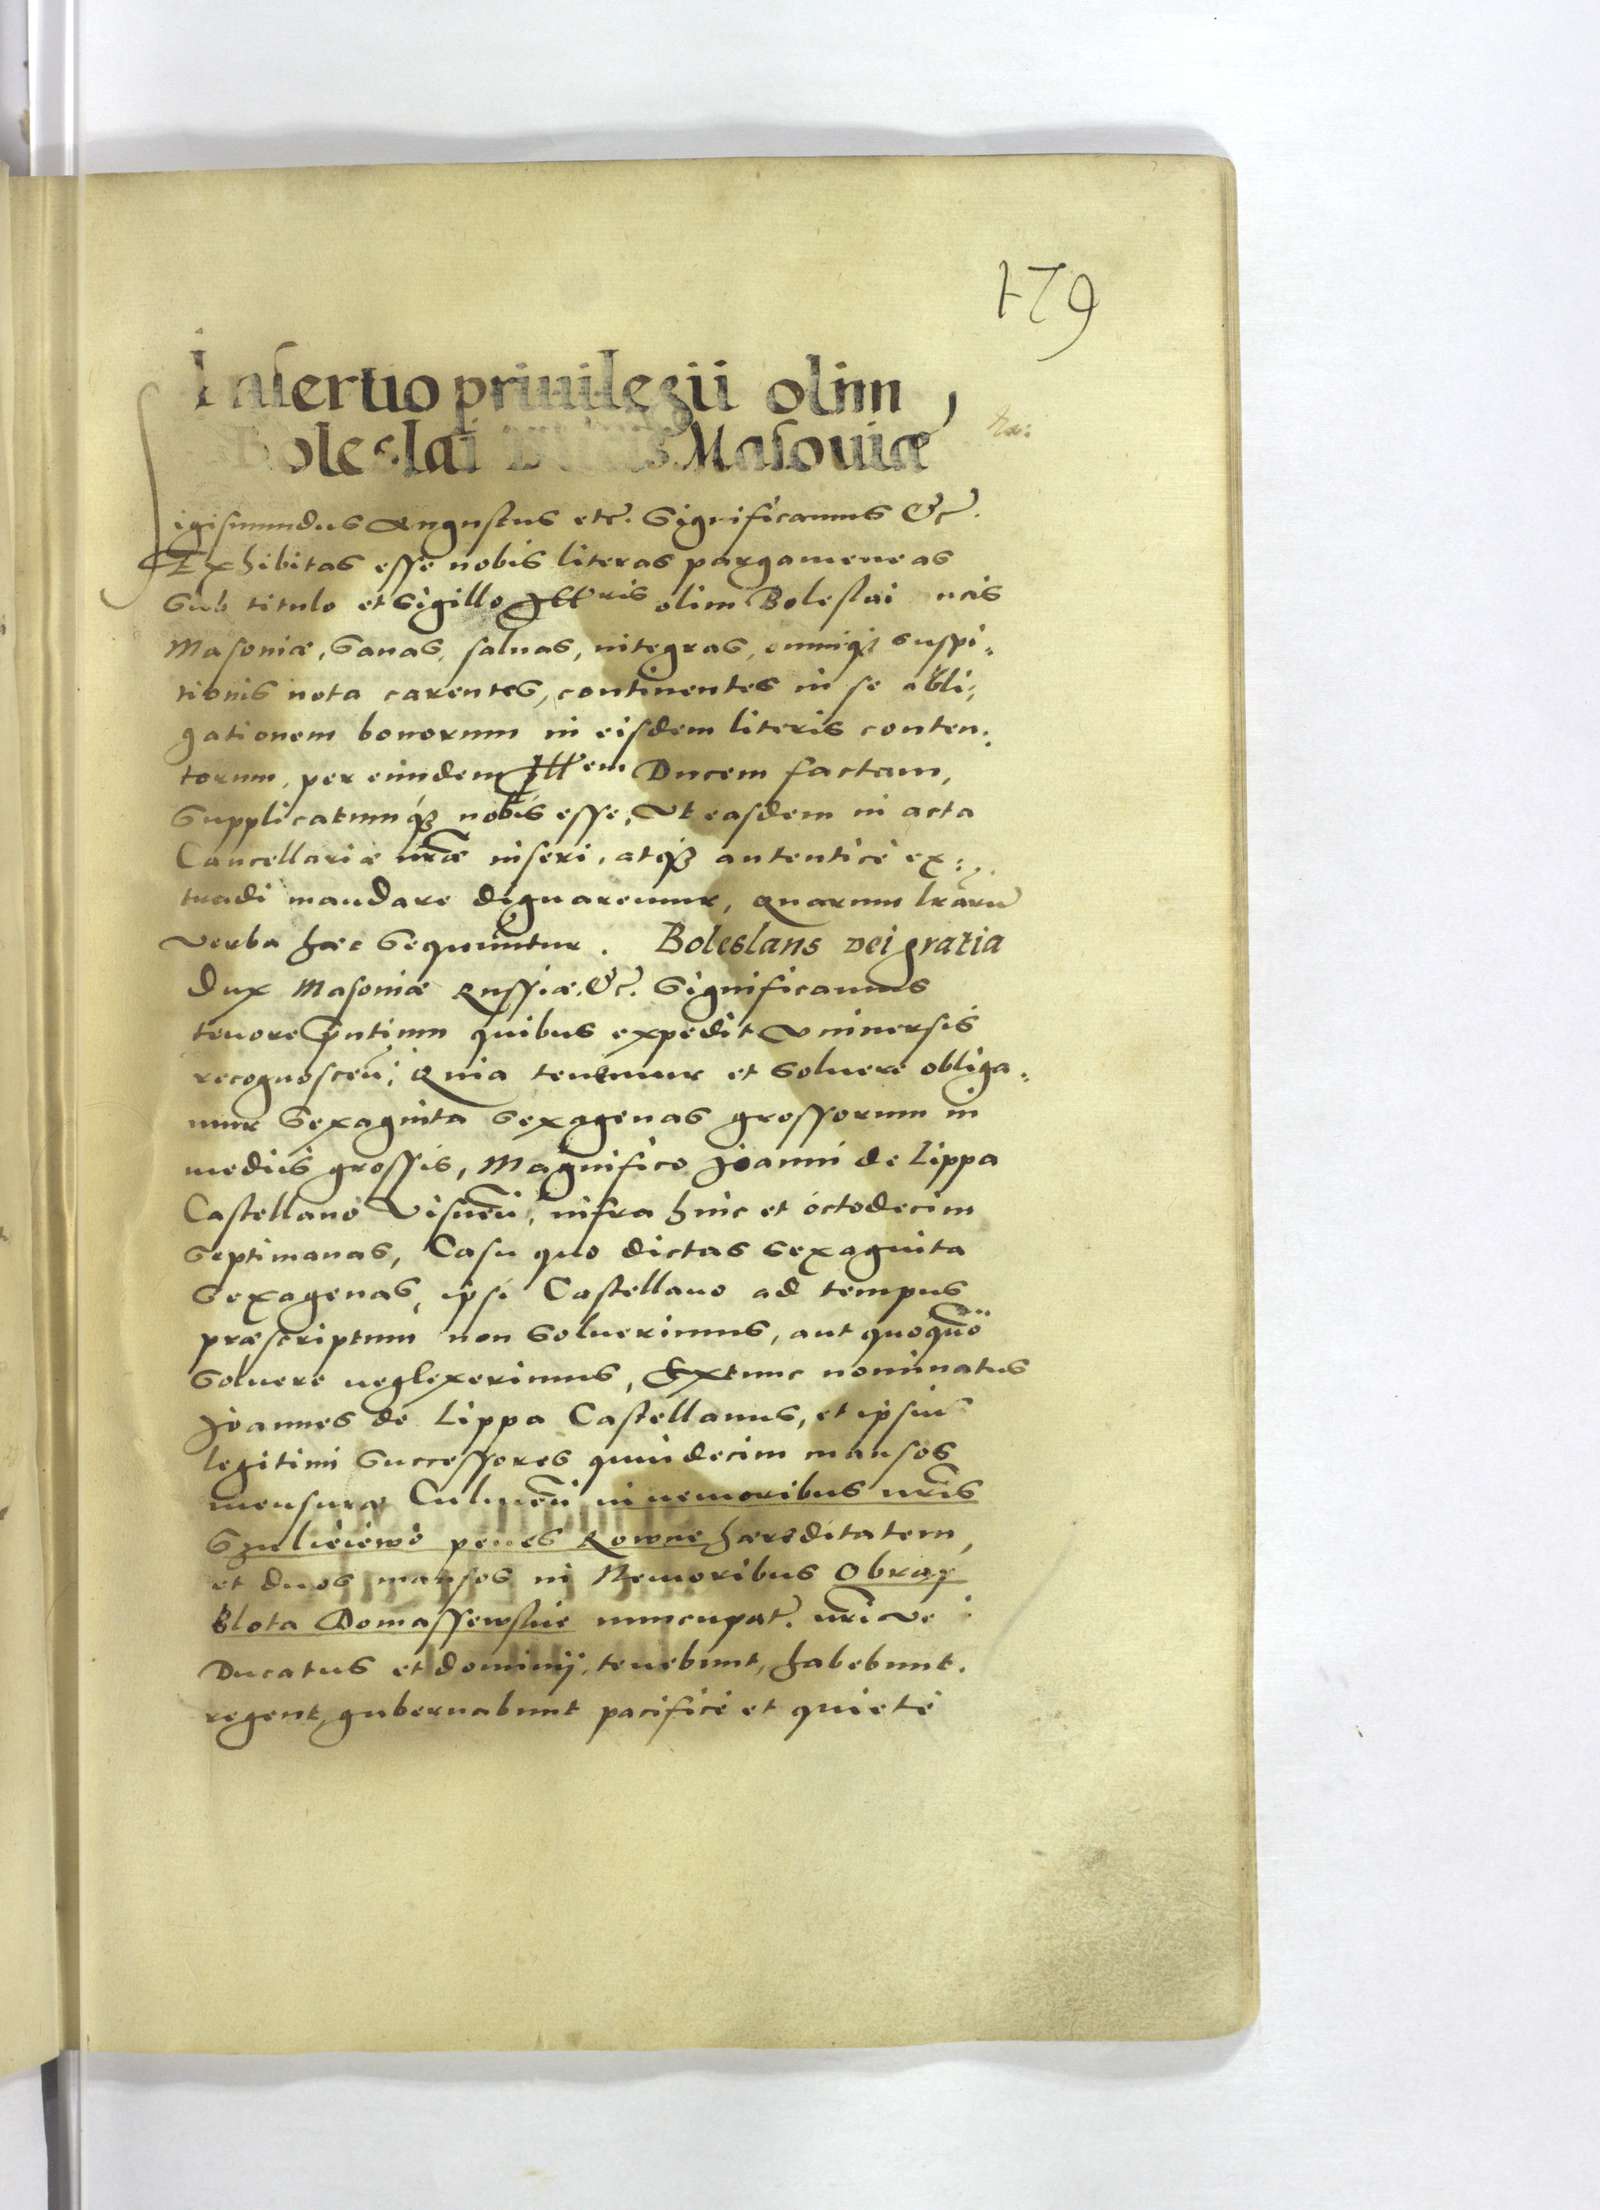 179
Insertio priuilegii olim
Boleslai Ducis Masouiæ
Sigismundus Augustus etc. Significamus &c.
Exhibitas esse nobis literas pargameneas
Sub titulo et Sigillo Ill^ris olim Boleslai ucis
Masouiæ, Sanas, saluas, integras, omniq₃ suspi,
tionis nota carentes, continentes in se obli,
gationem bonorum in eisdem literis conten,
torum, per eundem Ill^em Ducem factam,
Supplicatumq₃ nobis esse, Vt easdem in acta
Cancellariæ nr̃æ inseri, atq₃ autenticè ex,
tradi mandare dignaremur, Quarum lrãrũ
Verba hæc Sequuntur. Boleslaus Dei gratia
Dux Masouiæ Russiæ, &c. Significamus
tenore p̃ntium quibus expedit Vniuersis
recognoscen̄, Quia tenemur et Soluere obliga,
mur Sexaginta Sexagenas grossorum in
mediis grossis, Magnifico Joanni de Lippa
Castellano Visnen̄, infra hinc et octodecim
Septimanas, Casu quo dictas Sexaginta
Sexagenas, ipsi Castellano ad tempus
præscriptum non Soluerimus, aut quoquõ
Soluere neglexerimus, Extunc nominatus
Joannes de Lippa Castellanus, et ipsiũ
legitimi Successores quindecim mansos
mensuræ Culmen̄ in nemoribus nr̃is
Szulieiewo penes Rowne hæreditatem,
et duos mansos in Nemoribus Obray
Blota Domassewskie nuncupat. nr̃i Ve
Ducatus et dominij, tenebunt, habebunt.
regent, gubernabunt pacificè et quietè